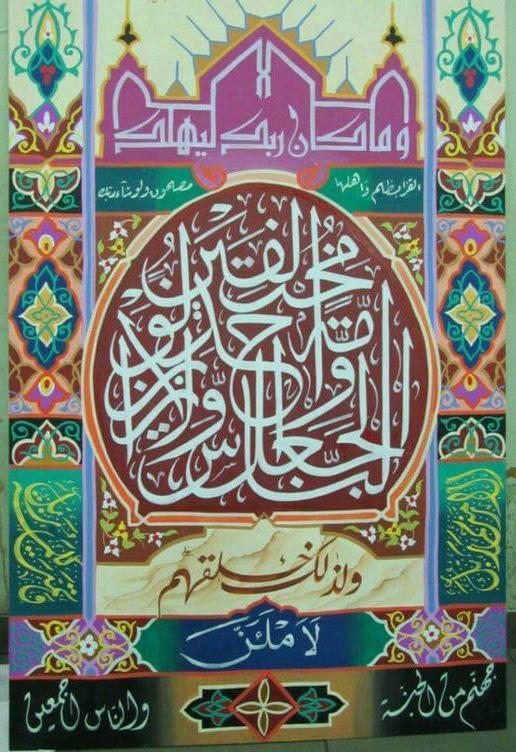 وما كان ربك ليهلك
القرا بظلم واهلها مصلحون ولو شاء ربك
لجعل الناس أمّة واحدة ولا يزالون مختلفين
الا من رحم ربك
ولذلك خلقهم
وتمت كلمة ربك
لَاَ ملئنَّ
جهنم من الجنّة والناس اجمعين